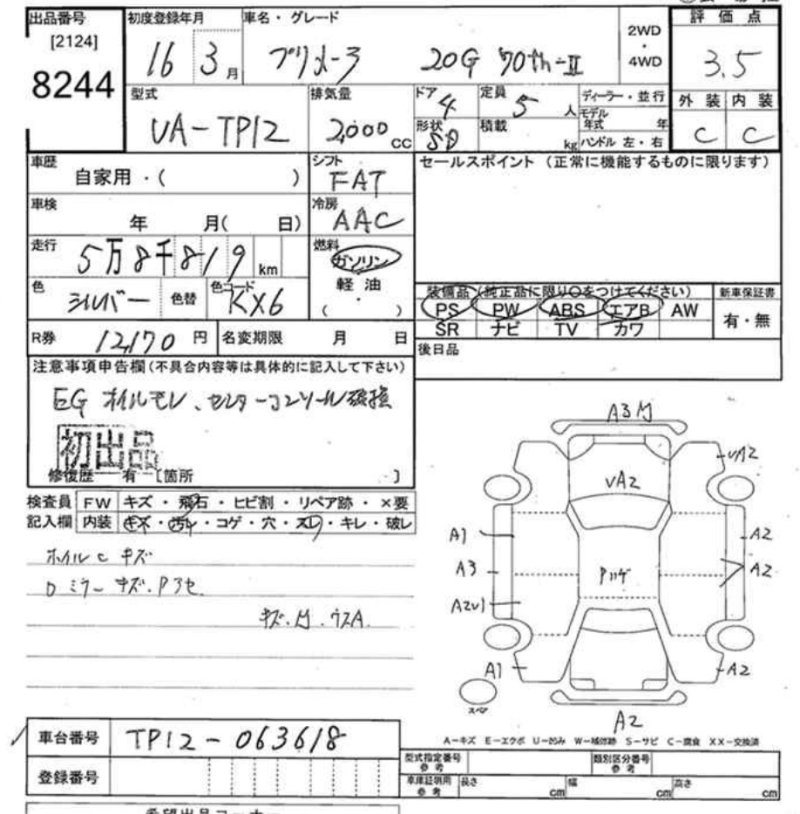 出品番号 初度登録年月 車名・グレード 評価点
[2124] 2WD
8244 16 3月 プリメーラ 20G 70th-II ・ 3.5
4WD
型式 排気量 ドア 4 定員 5人 ディーラー・並行 外装 内装
UA-TP12 2,000cc モデル年式 年
形状 SD 積載 kg ハンドル 左・右 C C
車歴 自家用・( ) シフト FAT セールスポイント (正常に機能するものに限ります)
車検 年 月( 日) 冷房 AAC
走行 5万8千819km 燃料 ガソリン
軽油
( )
色 シルバー 色替 色コード KX6
装備品 (純正品に限り○をつけてください) 新車保証書
PS PW ABS エアB AW 有・無
SR ナビ TV カワ
R券 12,170円 名変期限 月 日 後日品
注意事項申告欄(不具合内容等は具体的に記入して下さい)
EG オイルモレ、センターコンソール破損
初出品
修復歴 有 [箇所 ]
検査員 FW キズ・飛石・ヒビ割・リペア跡・×要
記入欄 内装 キズ・汚レ・コゲ・穴・スレ・キレ・破レ
ホイルc キズ
Dミラーキズ.
キズ.
A3
UA2 UA2
A1 A2
A3 A2
A2U1
A1 A2
スペア
A2
A-キズ E-エクボ U-凹み W-補修跡 S-サビ C-腐食 XX-交換済
車台番号 TP12-063618
登録番号
型式指定番号 参考 類別区分番号 参考
車庫証明用 参考 長さ cm 幅 cm 高さ cm
希望出品コーナー